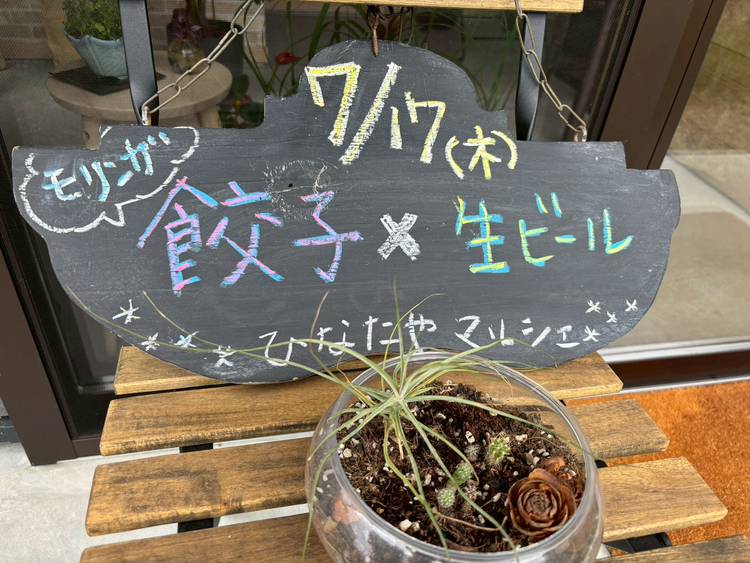 7/17(木)
モリンガ
餃子×生ビール
ひなたやマルシェ